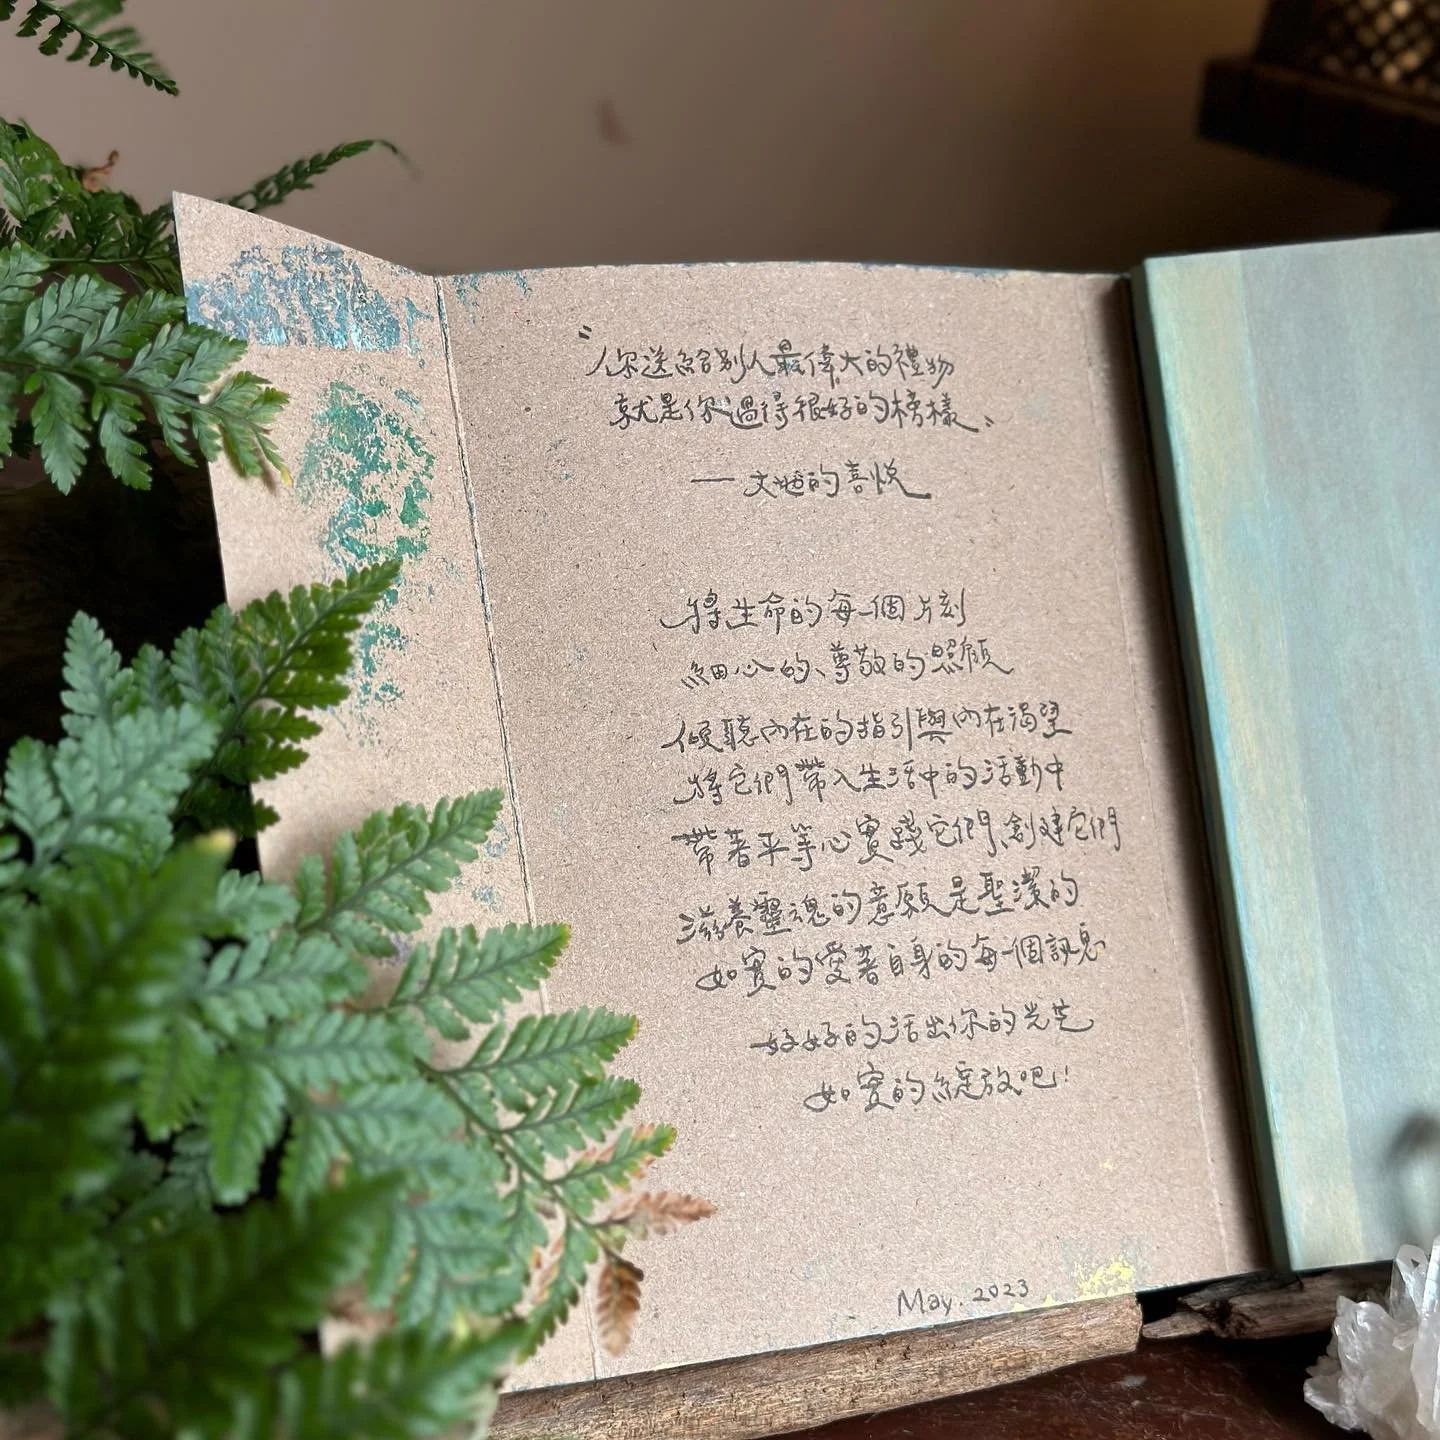 "你送給別人最偉大的禮物
就是你過得很好的榜樣"
— 文姐的喜悅
將生命的每一個片刻
細心的、尊敬的照顧
傾聽內在的指引與內在渴望
將它們帶入生活中的活動中
帶著平等心實踐它們、創建它們
滋養靈魂的意願是聖潔的
如實的愛著自身的每一個訊息
好好的活出你的光芒
如實的綻放吧!
May. 2023